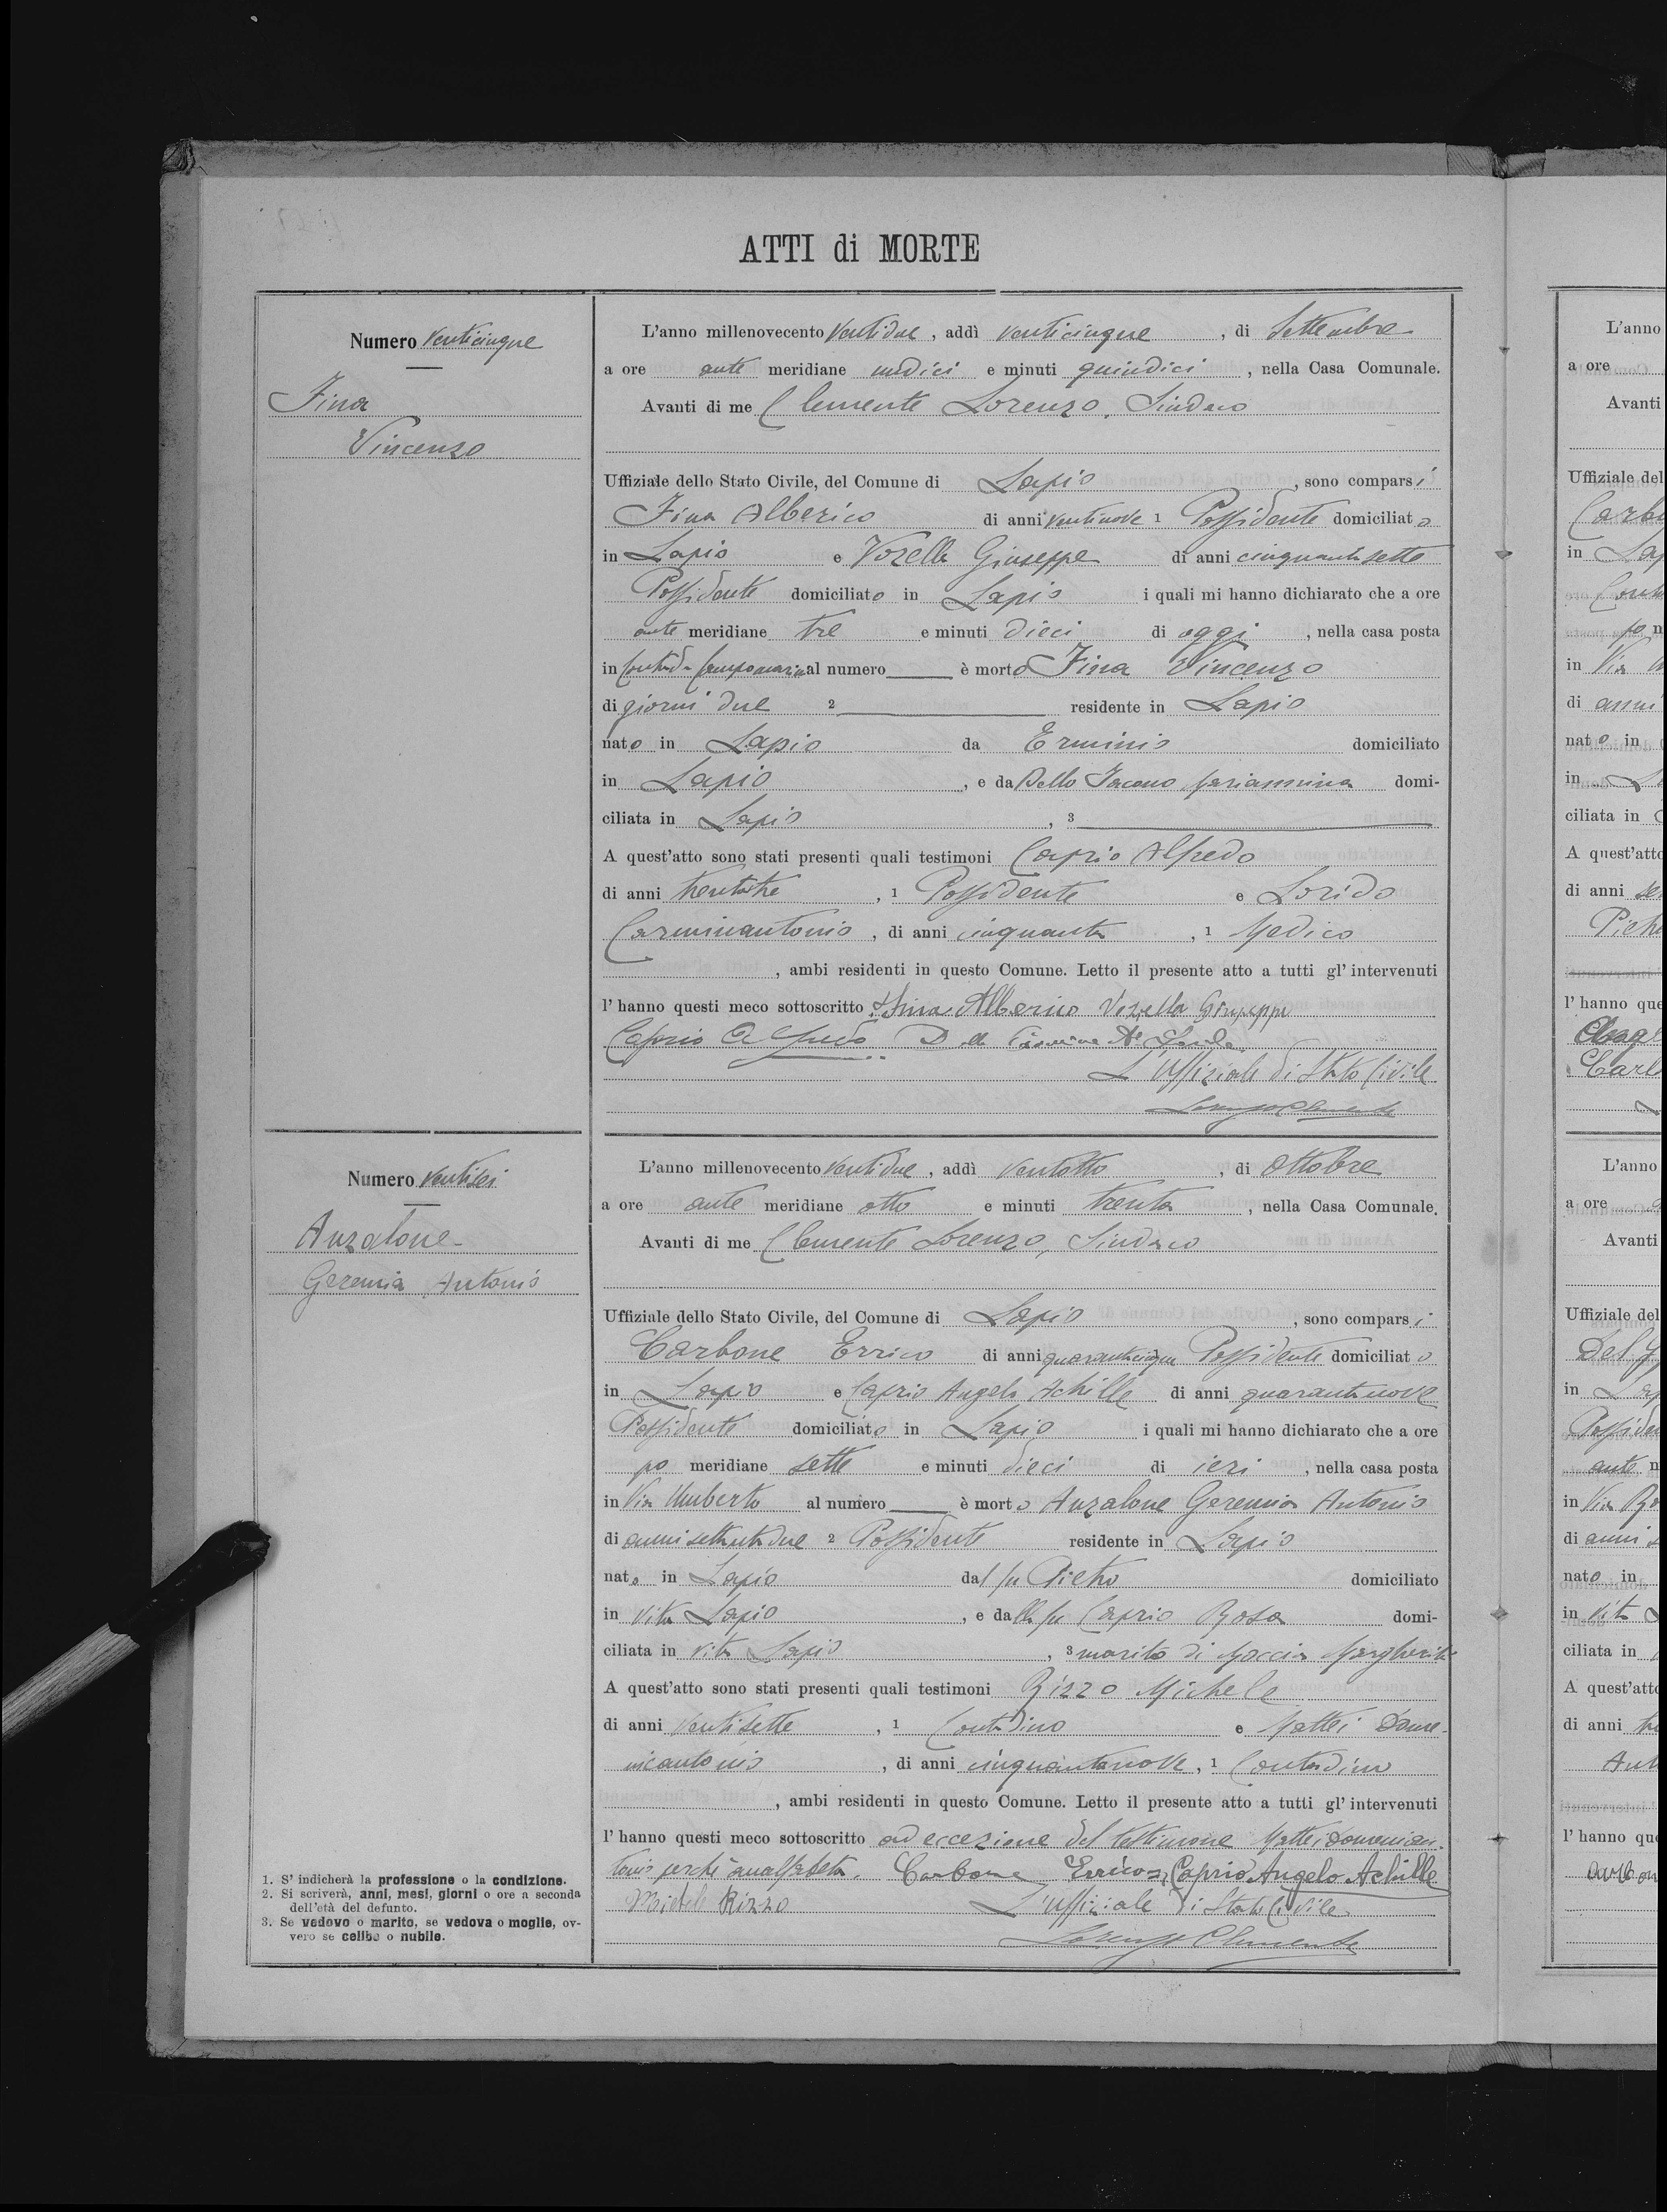 ATTI di MORTE
Numero venticinque
Fina
Vincenzo
L'anno millenovecento ventidue, addì venticinque, di Settembre
a ore ante meridiane undici e minuti quindici, nella Casa Comunale.
Avanti di me Clemente Lorenzo, Sindaco
Uffiziale dello Stato Civile, del Comune di Lapio, sono comparsi
Fina Alberico di anni ventinove 1 Possidente domiciliato
in Lapio e Vozella Giuseppe di anni cinquantasette
Possidente domiciliato in Lapio i quali mi hanno dichiarato che a ore
ante meridiane tre e minuti dieci di oggi, nella casa posta
in Contrada Campomarino al numero è morto Fina Vincenzo
di giorni due 2 residente in Lapio
nato in Lapio da Erminio domiciliato
in Lapio, e da Dello Iacono Mariannina domi-
ciliata in Lapio, 3
A quest'atto sono stati presenti quali testimoni Caprio Alfredo
di anni trentatre, 1 Possidente e Lorido
Carminantonio, di anni cinquanta, 1 Medico
, ambi residenti in questo Comune. Letto il presente atto a tutti gl'intervenuti
l'hanno questi meco sottoscritto. Fina Alberico Vozella Giuseppe
Caprio Alfredo
L'Uffiziale di Stato Civile
Lorenzo Clemente
Numero ventisei
Anzalone
Geremia Antonio
L'anno millenovecento ventidue, addì ventotto, di Ottobre
a ore ante meridiane otto e minuti trenta, nella Casa Comunale.
Avanti di me Clemente Lorenzo, Sindaco
Uffiziale dello Stato Civile, del Comune di Lapio, sono comparsi
Carbone Errico di anni quarantacinque Possidente domiciliato
in Lapio e Caprio Angelo Achille di anni quarantanove
Possidente domiciliato in Lapio i quali mi hanno dichiarato che a ore
po meridiane sette e minuti dieci di ieri, nella casa posta
in Via Umberto al numero è morto Anzalone Geremia Antonio
di anni settantadue 2 Possidente residente in Lapio
nato in Lapio dal fu Pietro domiciliato
in vita Lapio, e dalla fu Caprio Rosa domi-
ciliata in vita Lapio, 3 marito di Moccia Margherita
A quest'atto sono stati presenti quali testimoni Rizzo Michele
di anni ventisette, 1 Contadino e Mattei Dome-
nicantonio, di anni cinquantanove, 1 Contadino
, ambi residenti in questo Comune. Letto il presente atto a tutti gl'intervenuti
l'hanno questi meco sottoscritto ad eccezione del testimone Mattei Domenican-
tonio perchè analfabeta. Carbone Errico, Caprio Angelo Achille
Michele Rizzo L'Uffiziale di Stato Civile
Lorenzo Clemente
1. S'indicherà la professione o la condizione.
2. Si scriverà, anni, mesi, giorni o ore a seconda
dell'età del defunto.
3. Se vedovo o marito, se vedova o moglie, ov-
vero se celibe o nubile.
L'anno
a ore
Avanti
Uffiziale del
in
in Via
di anni
nato in
in
ciliata in
A quest'atto
di anni
l'hanno que
L'anno
a ore
Avanti
Uffiziale del
in
ante
in Via
di anni
nato in
in vita
ciliata in
A quest'atto
di anni
l'hanno qu